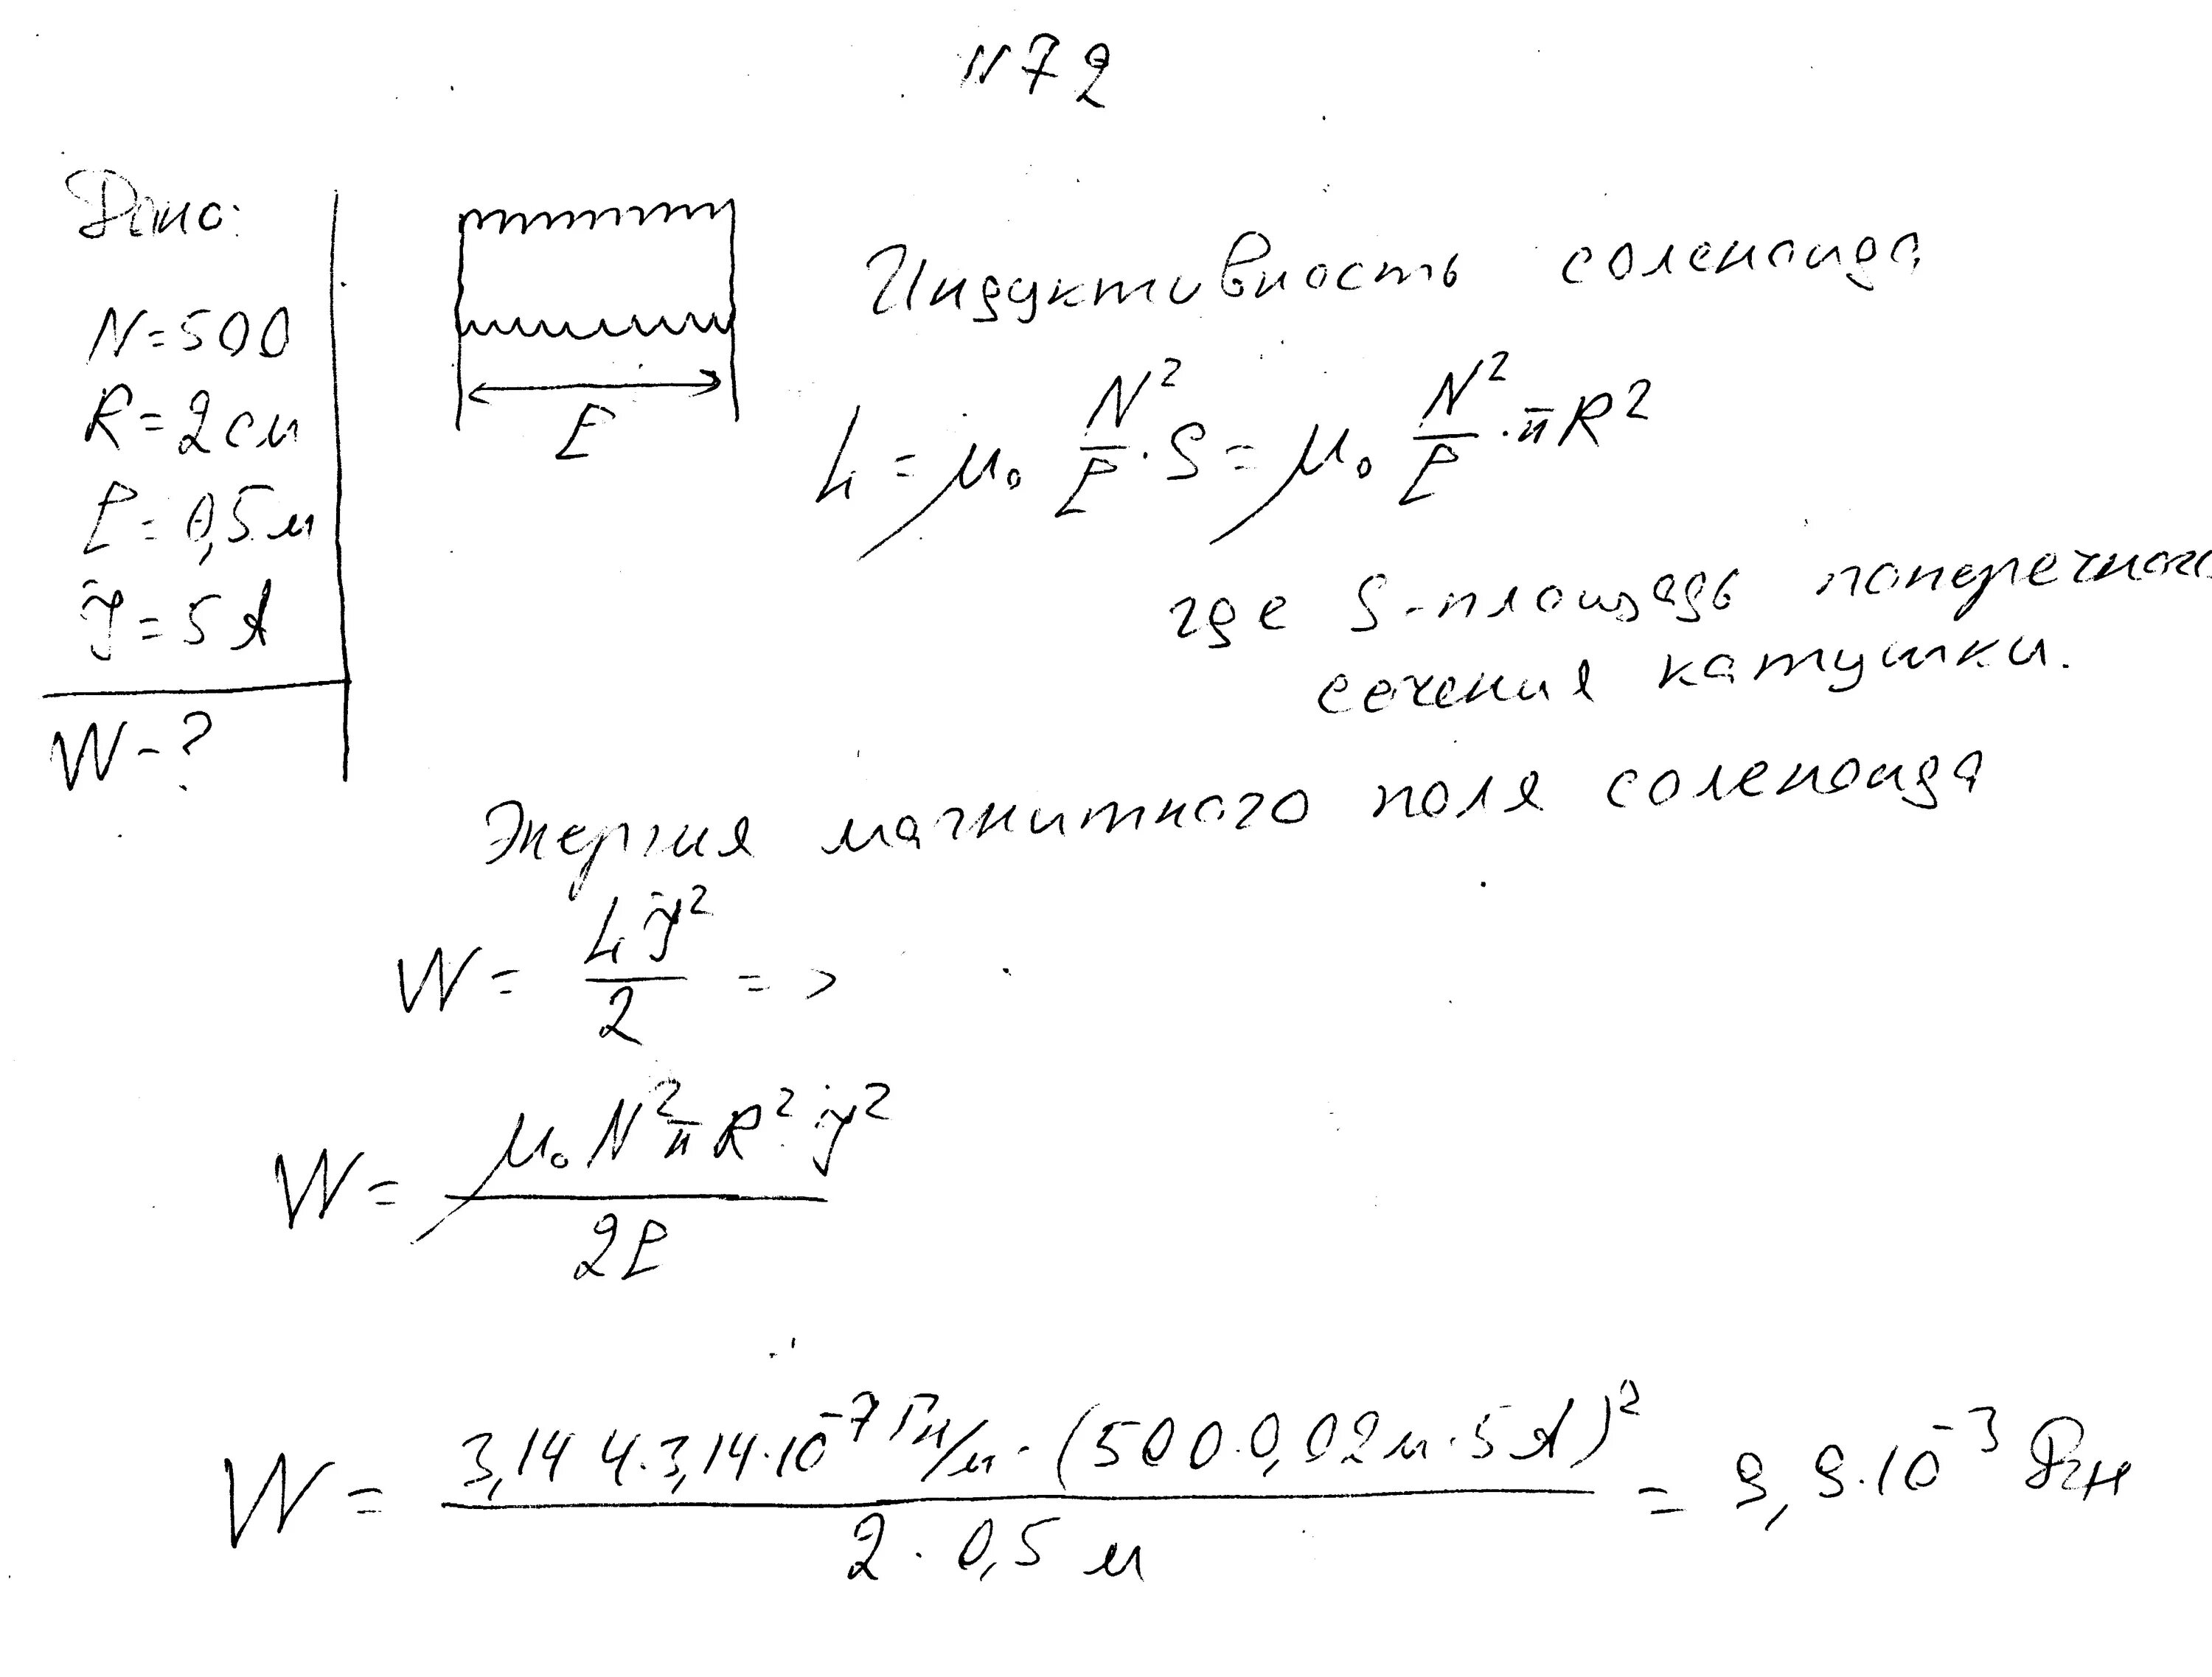 N72
Дано:
N=500
R=2см
ℓ=0,5м
J=5А
W-?
ℓ
Индуктивность соленоида
L=μ₀ N²/ℓ · S = μ₀ N²/ℓ · πR²
где S-площадь поперечного
сечения катушки.
Энергия магнитного поля соленоида
W = LJ²/2 =>
W = μ₀N²πR²J²/2ℓ
W = 3,14 4·3,14·10⁻⁷ Гн/м · (500·0,02м·5А)²/2·0,5 м = 9,9·10⁻³ Дж